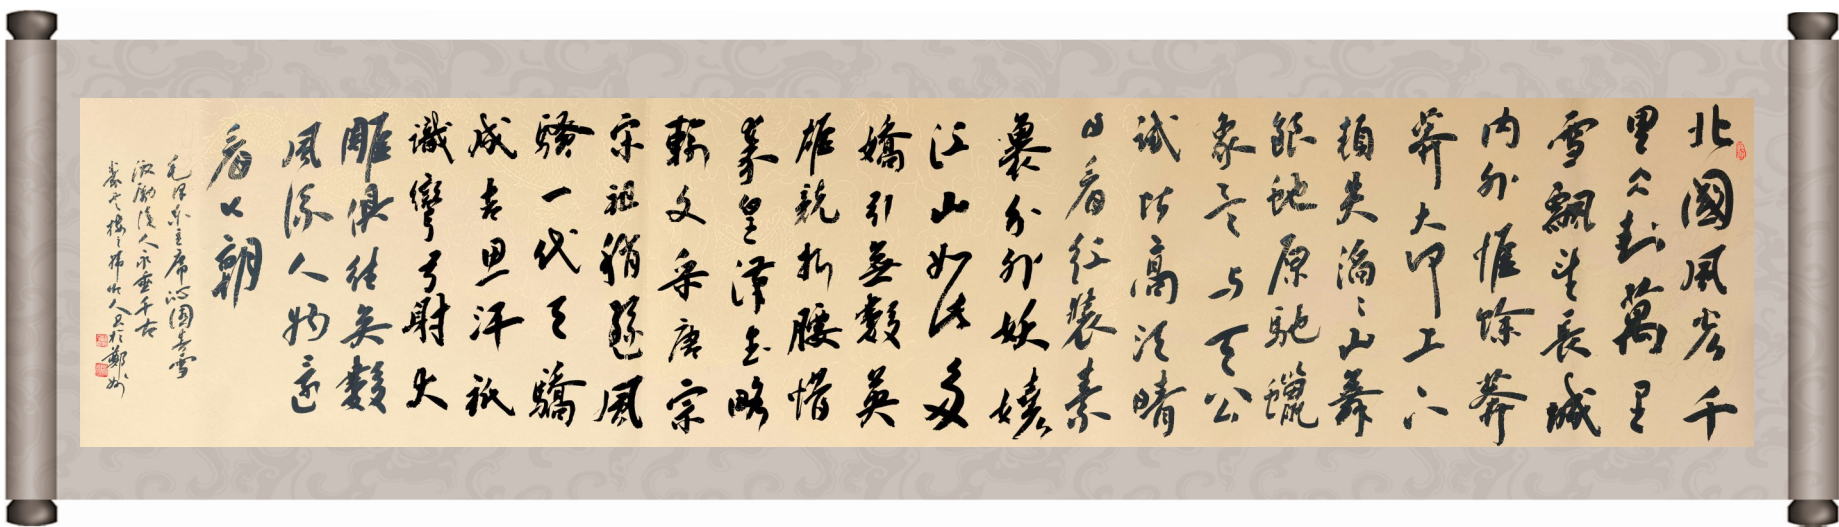 北國風光千
里冰封萬里
雪飄望長城
内外惟餘莽
莽大河上下
頓失滔滔山舞
銀蛇原馳蠟
象欲与天公
試比高須晴
日看紅裝素
裹分外妖嬈
江山如此多
嬌引無數英
雄競折腰惜
秦皇漢武略
輸文采唐宗
宋祖稍遜風
騷一代天驕
成吉思汗祇
識彎弓射大
雕俱往矣數
風流人物還
看今朝
毛澤東主席沁園春雪
激勵後人永垂千古
樓主於鄭州